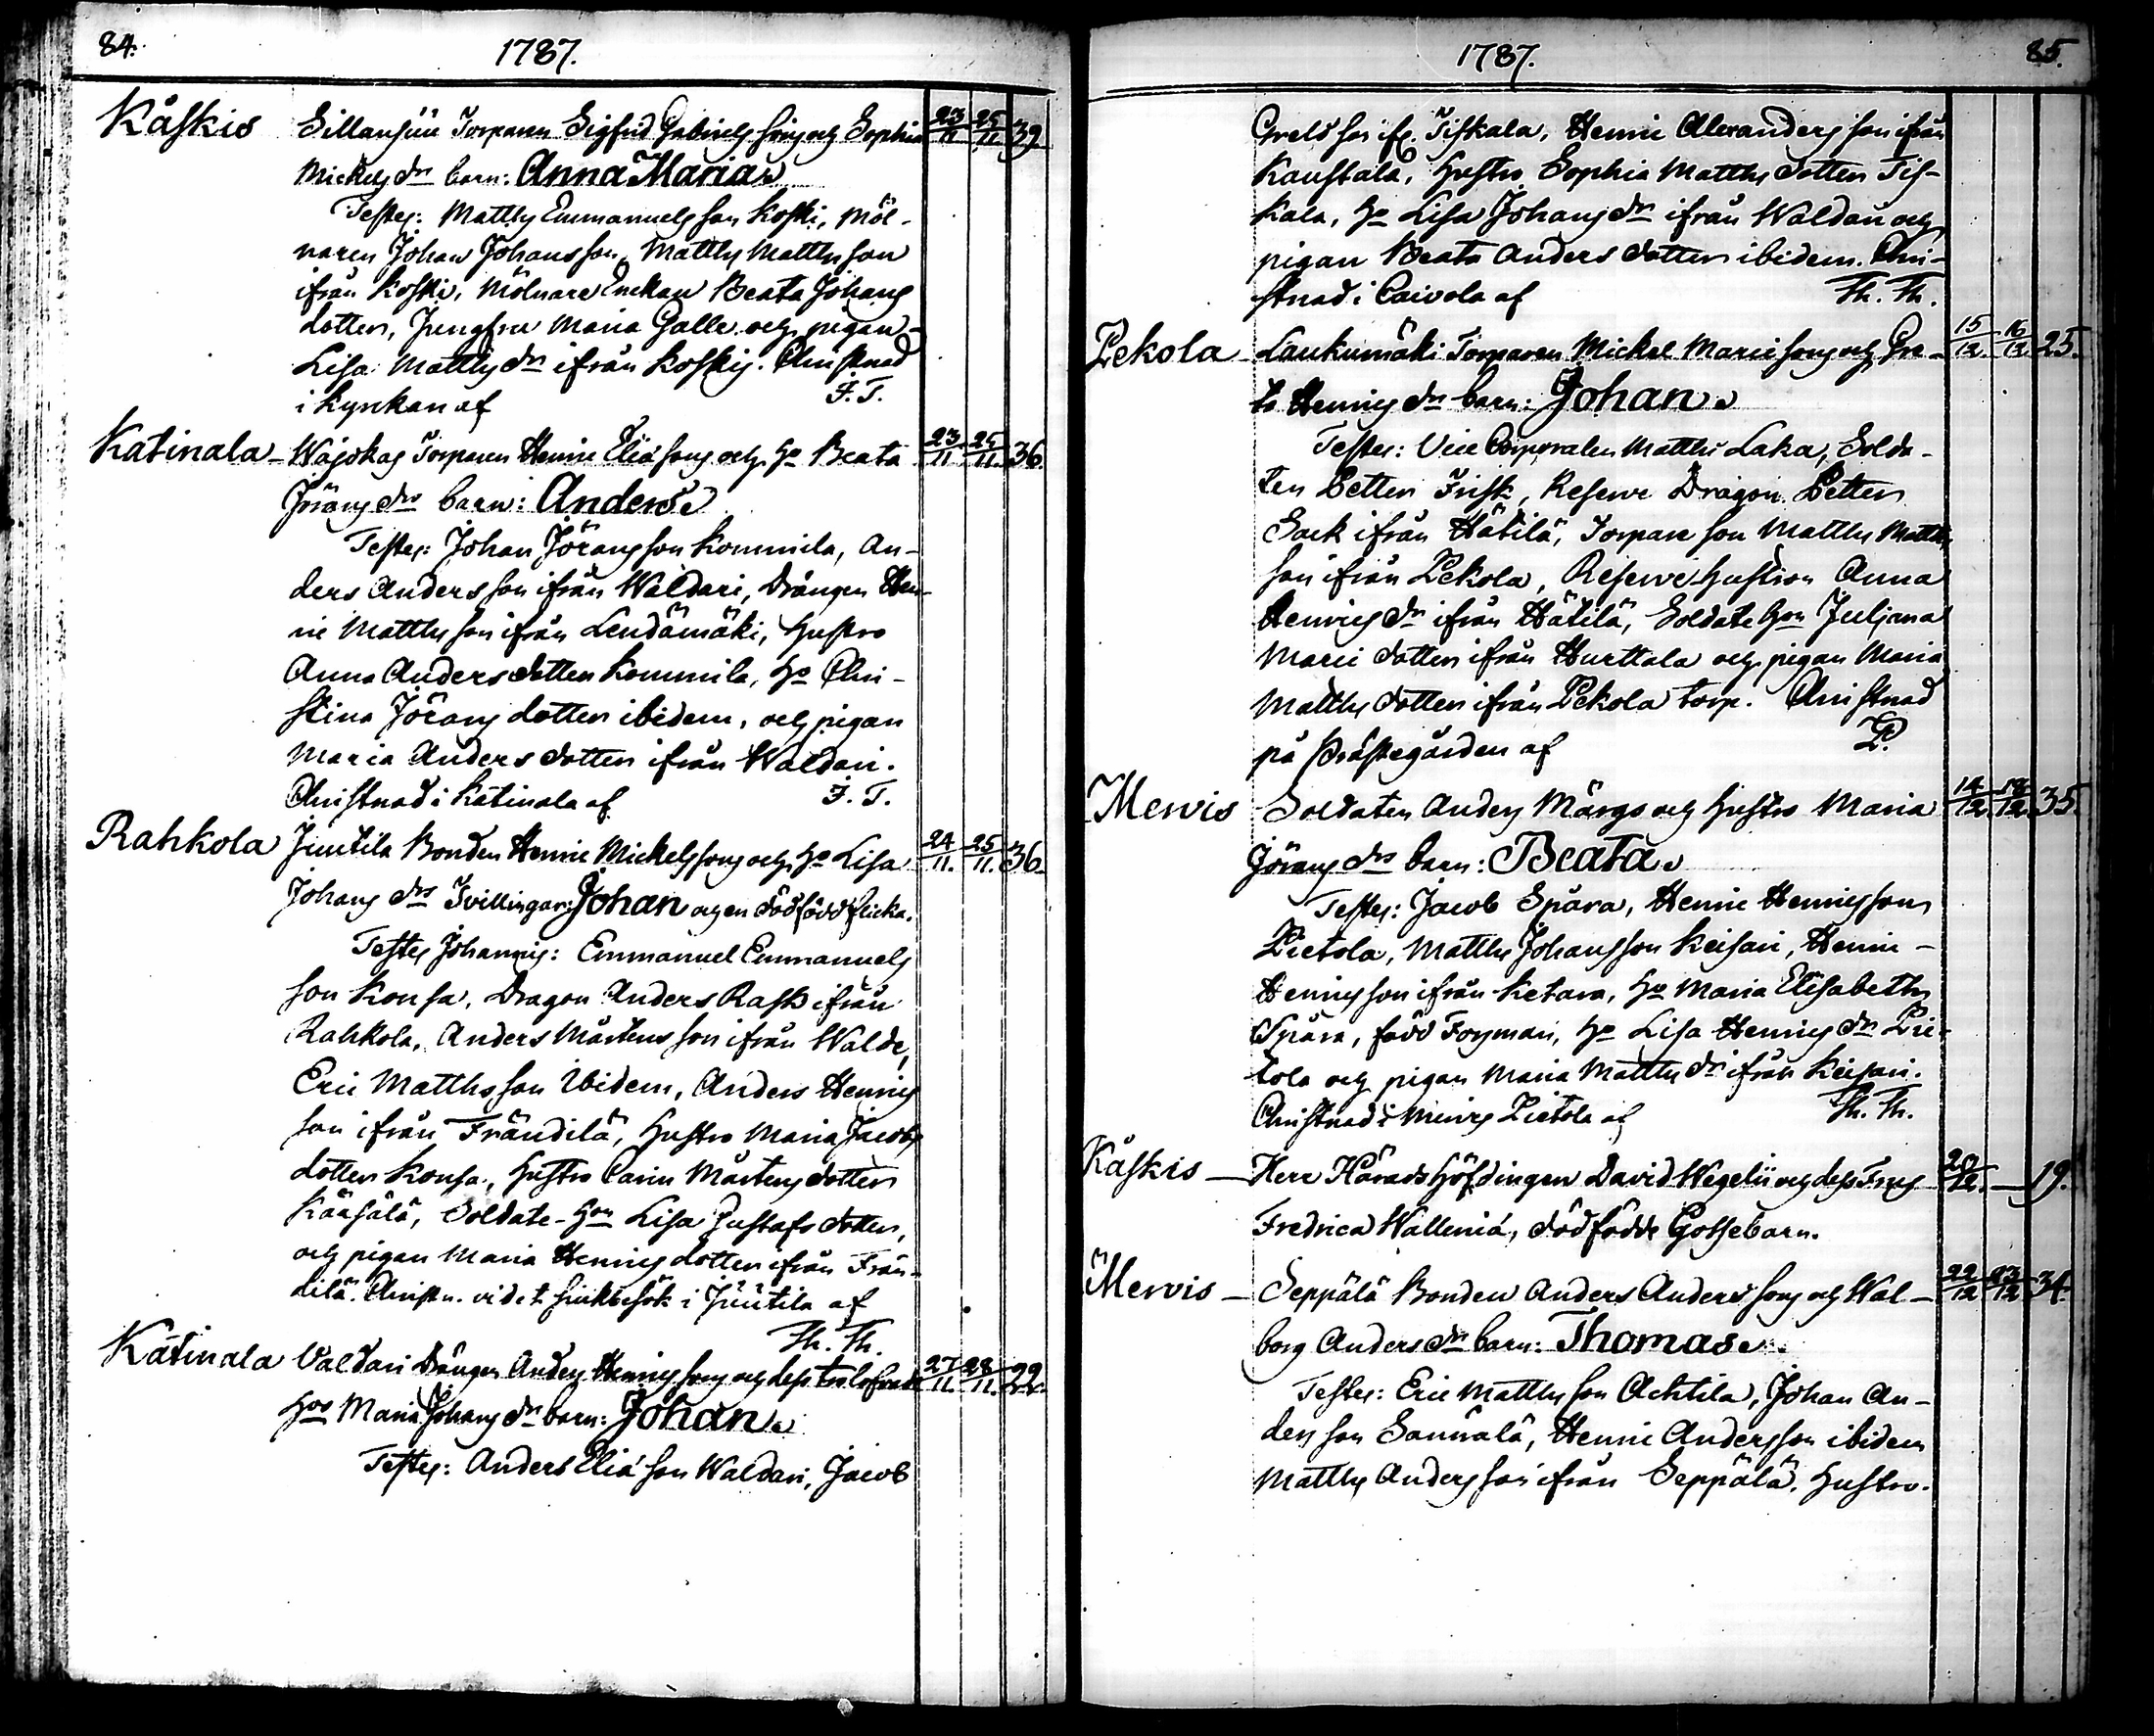 84.
1787.
Kåskis Sillansuu Torparen Sigfrid Gabriels sons och Sophia 23/11 25/11 39
Mickels dr barn: Anna Maria
Testes: Matths Emmanuels son Koski, Möl-
naren Johan Johansson, Matths Matths son
ifrån Koski, Mölnare Enckan Beata Johans
dotter, Jungfru Maria Galle och pigan
Lisa Matths dr ifrån Koskis. Christnad
i Kyrckan af F. T.
Katinala Torparen Henric Eliæ sons och ho Beata 23/11 25/11 36
Jörans drs barn: Anders
Testes: Johan Jörans son Kommila, An-
ders Anders son ifrån Waldari, Drängen Hen-
ric Matths son ifrån Lendämäki, hustro
Anna Anders dotter Kommila, ho Chri-
stina Jörans dotter ibidem, och pigan
Maria Anders dotter ifrån Waldari.
Christnad i Katinala af F. T.
Rahkola Juutila Bonden Henric Mickels sons och ho Lisa 24/11. 25/11. 36.
Johans drs Tvillingar: Johan och en dödfödd flicka.
Testes Johannis: Emmanuel Emmanuels
son Konsa, Dragon Anders Rask ifrån
Rahkola, Anders Mårtens son ifrån Walde,
Eric Matths son ibidem, Anders Henrics
son ifrån Frändilä, hustro Maria Jacobs
dotter Konsa, hustro Carin Mårtens dotter
Kääsälä, Soldate-hon Lisa Gustafs dotter,
och pigan Maria Henrics dotter ifrån Frän-
dilä. Christn. vid et siukbesök i Juutila af
Th. Th.
Katinala Valdari Drängen Anders Henrics sons och dess trolofvade 27/11. 28/11. 22.
hos Maria Johans dr barn: Johan
Testes: Anders Eliæ son Waldari, Jacob
1787.
85.
Grels son ifr. Tiskala, Henric Alexanders son ifrån
Kaustala, hustro Sophia Matths dotter Tis-
kala, ho Lisa Johans dr ifrån Waldari och
pigan Beata Anders dotter ibidem. Chri-
stnad i Caivola af Th. Th.
Pekola Laukumäki Torparen Mickel Marci sons och Gre- 15/12. 16/12 25.
ta Henrics drs barn: Johan
Testes: Vice Corporalen Matths Laka, Solda-
ten Petter Frisk, Reserve Dragon Petter
Sack ifrån Hätilä, Torpare son Matths Matths
son ifrån Pekola, Reserve hustron Anna
Henrics dr ifrån Hätilä, Soldate hon Juliana
Marci dotter ifrån Hurttala och pigan Maria
Matths dotter ifrån Pekola torp. Christnad
på Prästegården af P.
Mervis Soldaten Anders Märgs och hustro Maria 14/12. 18/12. 35.
Jörans drs barn: Beata
Testes: Jacob Spåra, Henric Henrics son
Pietola, Matths Johansson Keisari, Henric
Henrics son ifrån Ketara, ho Maria Elisabeth
Spåra, född Forsman, ho Lisa Henrics dr Pie-
tola och pigan Maria Matths dr ifrån Keisari.
Christnad i Mervis Pietola af Th. Th.
Kåskis Herr Häradshöfdingen David Wegelii och dess Frus 20/12. 19.
Fredrica Walleniá, dödfödde Gossebarn.
Mervis Seppälä Bonden Anders Anders sons och Wal- 22/12 23/12 34.
borg Anders drs barn: Thomas
Testes: Eric Matths son Achtila, Johan An-
ders son Sannala, Henric Andersson ibidem
Matths Anders son ifrån Seppälä, hustro.